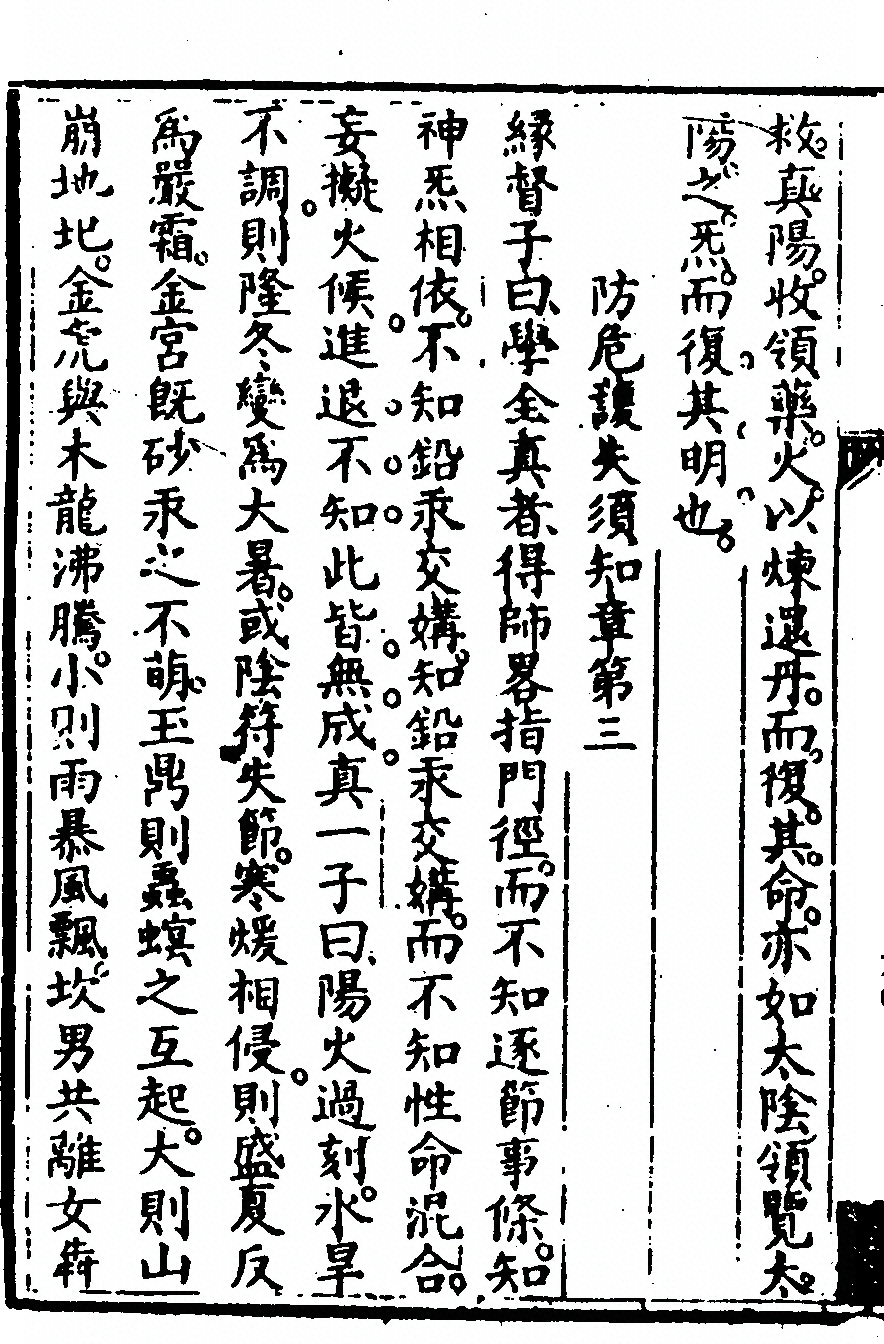 救真陽。收領藥火以煉還丹。而復其命。亦如太陰領覽太
陽之炁。而復其明也。
防危護失須知章第三
緣督子曰、學全真者、得師畧指門徑。而不知逐節事條。知
神炁相依。不知鉛汞交媾。知鉛汞交媾。而不知性命混合。
妄擬火候進退不知此皆無成真一子曰、陽火過刻。水旱
不調。則隆冬變爲大暑。或陰符失節。寒煖相侵。則盛夏反
爲嚴霜。金宮既砂汞之不萌。玉鼎則蟲螟之互起。大則山
崩地圮。金虎與木龍沸騰。小則雨暴風飄。坎男共離女犇